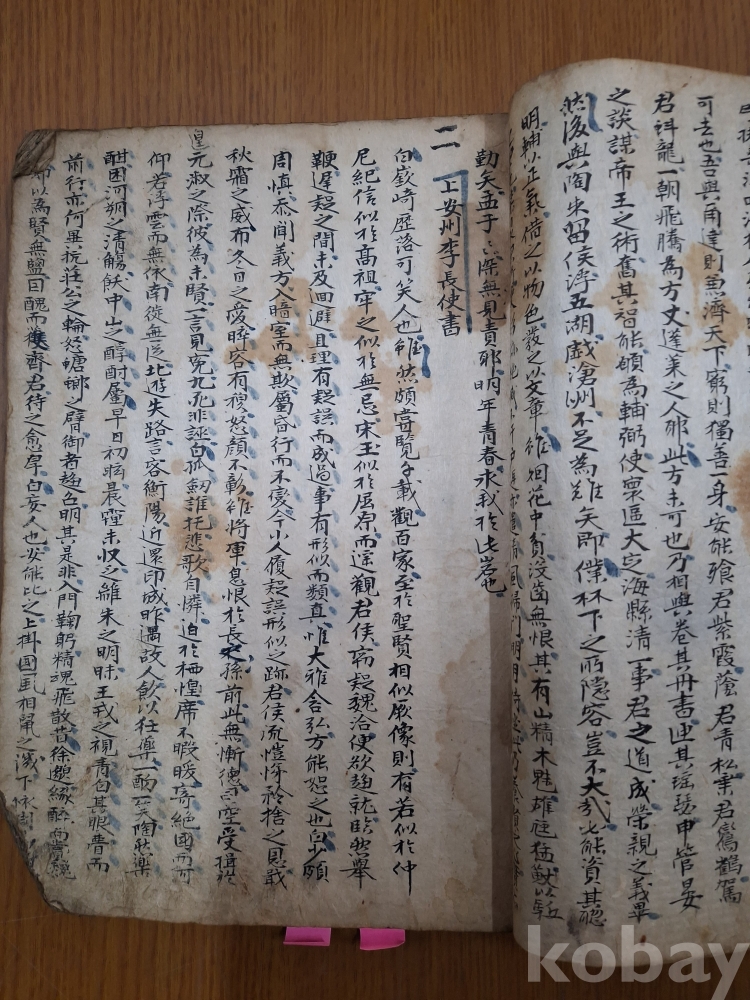 可去也吾與爾達則兼濟天下窮則獨善一身安能飱君紫霞蔭君青松乘君鸞鶴駕
君虯龍一朝飛騰為方丈蓬萊之人耶此方未可也乃相與卷其丹書匣其瑤瑟申管晏
之談謀帝王之術奮其智能願為輔弼使寰區大定海縣清一事君之道成榮親之義畢
然後與陶朱留侯浮五湖戲滄洲不足為難矣即僕林下之所隱容豈不大哉必能資其聰
明輔以正氣借之以物色發之以文章雖烟花中貧沒齒無恨其有山精木魅雄虺猛獸以
勤矣孟子〻深無見責耶明年青春求我於此岩也
二
上安州李長使書
白嶔崎歷落可笑人也雖然頗嘗覽千載觀百家至於聖賢相似厥像則有若似於仲
尼紀信似於高祖牢之似於無忌宋玉似於屈原而遙觀君侯竊疑魏洽便欲趨就臨然舉
鞭遲疑之間未及迴避且理有疑誤而成過事有形似而類真惟大雅含弘方能恕之也白少頗
周慎忝聞義方入暗室而無欺屬昏行而不變今小人履疑誤形似之跡君侯流愷悌矜捨之恩戢
秋霜之威布冬日之愛睟容有穆怒顔不彰雖將軍息恨於長孫前此無慚德司空受揖於
元淑之際彼為未賢一言見冤九死非謝白孤劒誰托悲歌自憐迫於栖惶席不暇暖寄絕國而可
仰若浮雲而無依南徙無從北遊失路言容衡陽近還印成昨遇故人飮以狂藥一酌一笑陶然樂
酣困河朔之清觴飫中山之醇酎屬早日初眩晨霾未収乏離朱之明昧王戎之視青白其眼瞢而
前行亦何異抗莊公之輪怒螗螂之臂御者趨召明其是非入門鞠躬精魂飛散昔徐邈緣醉而賞魏
却以為賢無鹽因醜而獲齊君待之愈厚白妄人也安能比之上掛國風相鼠之譏下
kobay